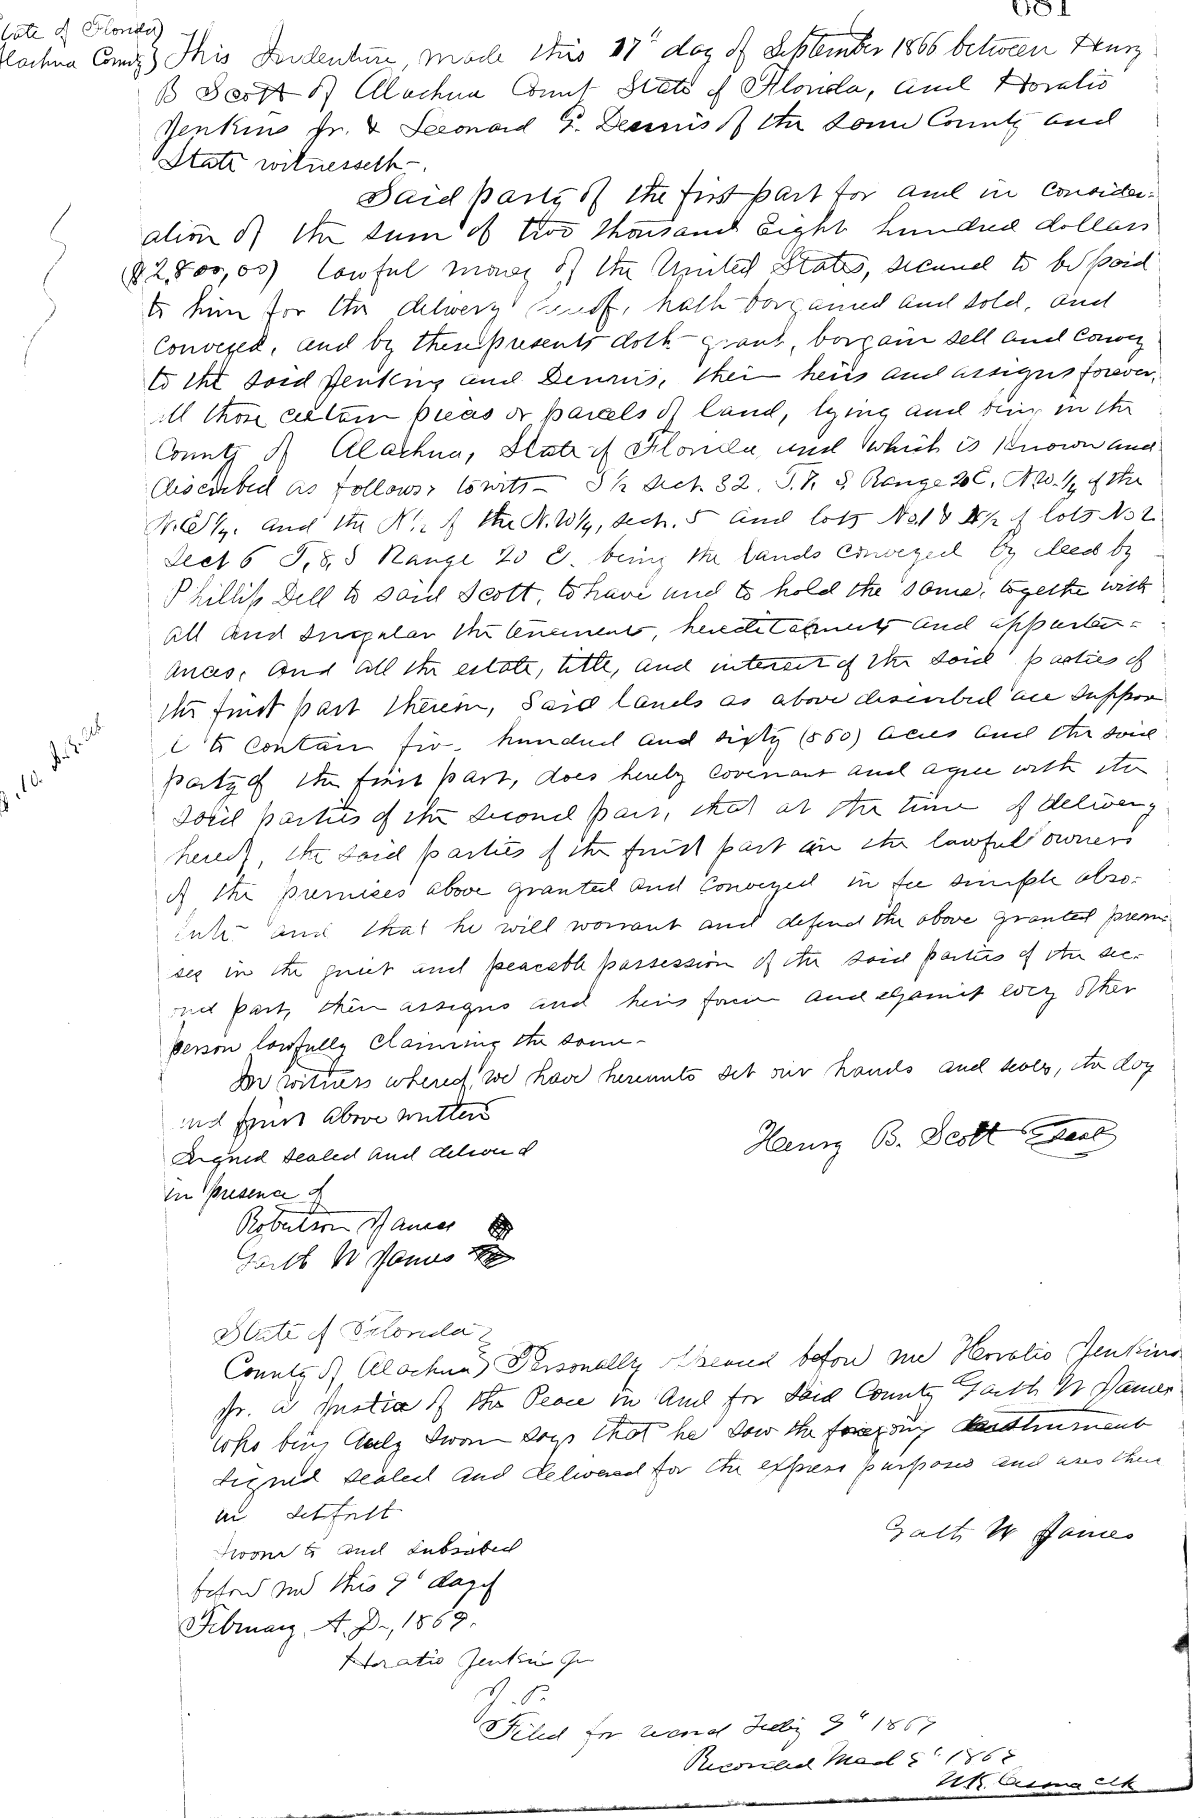 681
State of Florida)
Alachua County) This Indenture, made this 17" day of September 1866 between Henry
B Scott of Alachua Count State of Florida, and Horatio
Jenkins Jr. & Leonard G. Dennis of the same County and
State witnesseth-.
Said party of the first part for and in consider-
ation of the sum of two thousand Eight hundred dollars
($2,800,00) lawful money of the United States, secured to be paid
to him for the delivery hereof, hath bargained and sold, and
conveyed, and by these presents doth grant, bargain sell and convey
to the said Jenkins and Dennis, their heirs and assigns forever,
all those certain pieces or parcels of land, lying and being in the
County of Alachua, State of Florida and which is known and
discribed as follows, towits- S½ Sect. 32. T.7. S Range 20 E, N.W.¼ of the
N.E¼. and the N½ of the N.W¼, sect. 5 and lots No1 & N½ of lots No 2
Sect 6 T, 8, S Range 20 E. being the lands conveyed by deed by
Phillip Dell to said Scott, to have and to hold the same, togethe with
all and singular the tenements, hereditaments and appurten-
ances, and all the estate, title, and interest of the said parties of
the first part therein, Said lands as above discribed are suppose
d to contain five hundred and sixty (560) acres and the said
party of the first part, does hereby covenant and agree with the
said parties of the second part, that at the time of delivery
hereof, the said parties of the first part are the lawful owners
of the premises above granted and conveyed in fee simple abso-
lute and that he will warrant and defend the above granted premi
ses in the quiet and peacable possession of the said parties of the sec-
ond part, their assigns and heirs forever and against every other
person lawfully claiming the same-
In witness whereof we have hereunto set our hands and seals, the day
and first above written
Signed sealed and deliverd
in presence of
Henry B. Scott Seal
Robertson James
Garth W James
State of Florida)
County of Alachua) Personally appeared before me Horatio Jenkins
Jr. a Justice of the Peace in and for said County Garth W James
who being duly sworn says that he saw the foregoing instrument
signed sealed and delivered for the express purposes and uses there
in setforth
Sworn to and subscribed
before me this 9" day of
February, A. D., 1869.
Garth W James
Horatio Jenkins Jr
J. P.
Filed for record Feby 9" 1869
Recorded 1869
clk